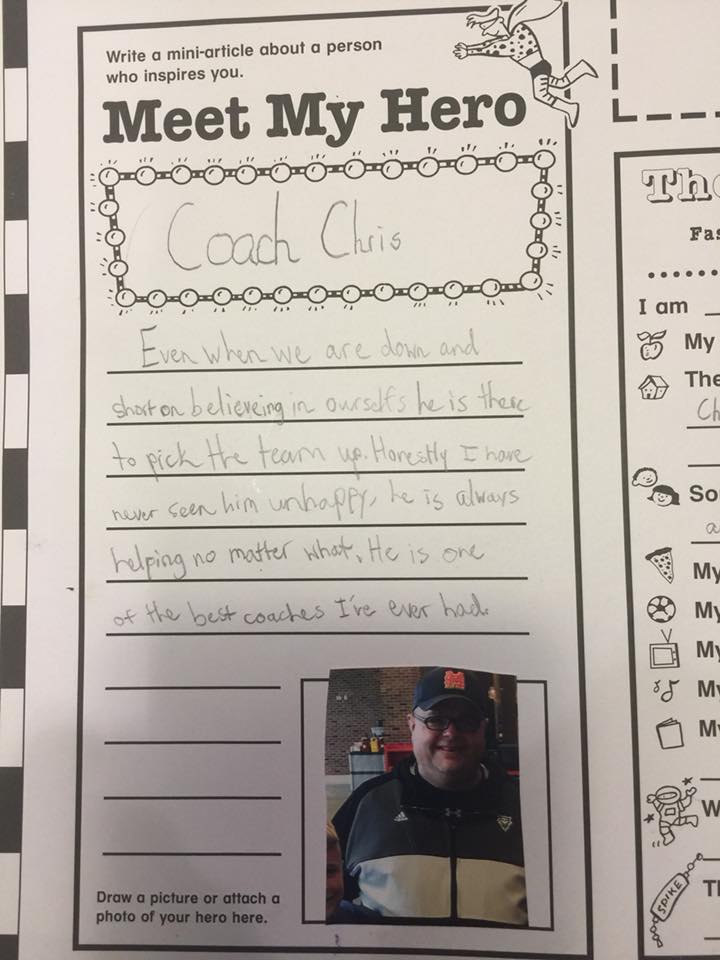 Write a mini-article about a person
who inspires you.
Meet My Hero
Coach Chris
Even when we are down and
short on believeing in ourselfs he is there
to pick the team up. Honestly I have
never seen him unhappy, he is always
helping no matter what. He is one
of the best coaches I've ever had.
Draw a picture or attach a
photo of your hero here.
Fas
I am
My
The
Ch
So
a
My
My
My
My
M
W
SPIKE